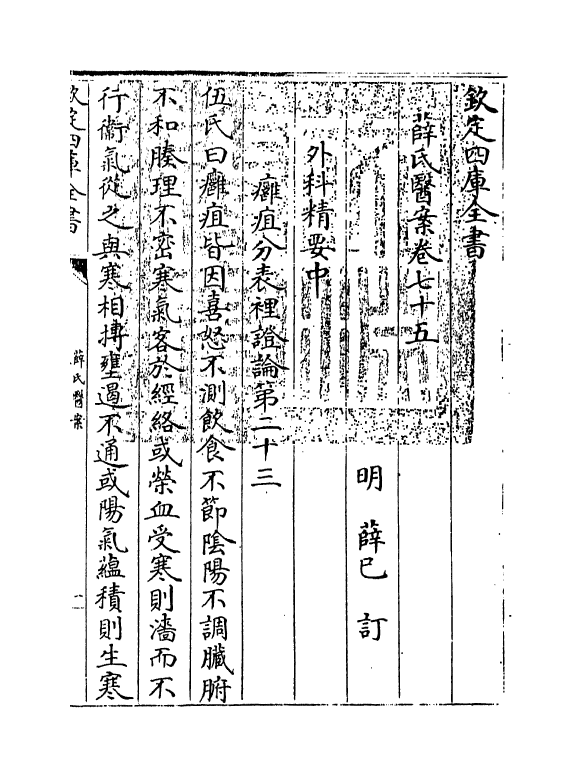 欽定四庫全書
薛氏醫案卷七十五
明 薛已 訂
外科精要中
癰疽分表裡證論第二十三
伍氏曰癰疽皆因喜怒不測飲食不節陰陽不調臟腑
不和腠理不密寒氣客於經絡或榮血受寒則濇而不
行衛氣從之與寒相搏壅遏不通或陽氣蘊積則生寒
欽定四庫全書
薛氏醫案